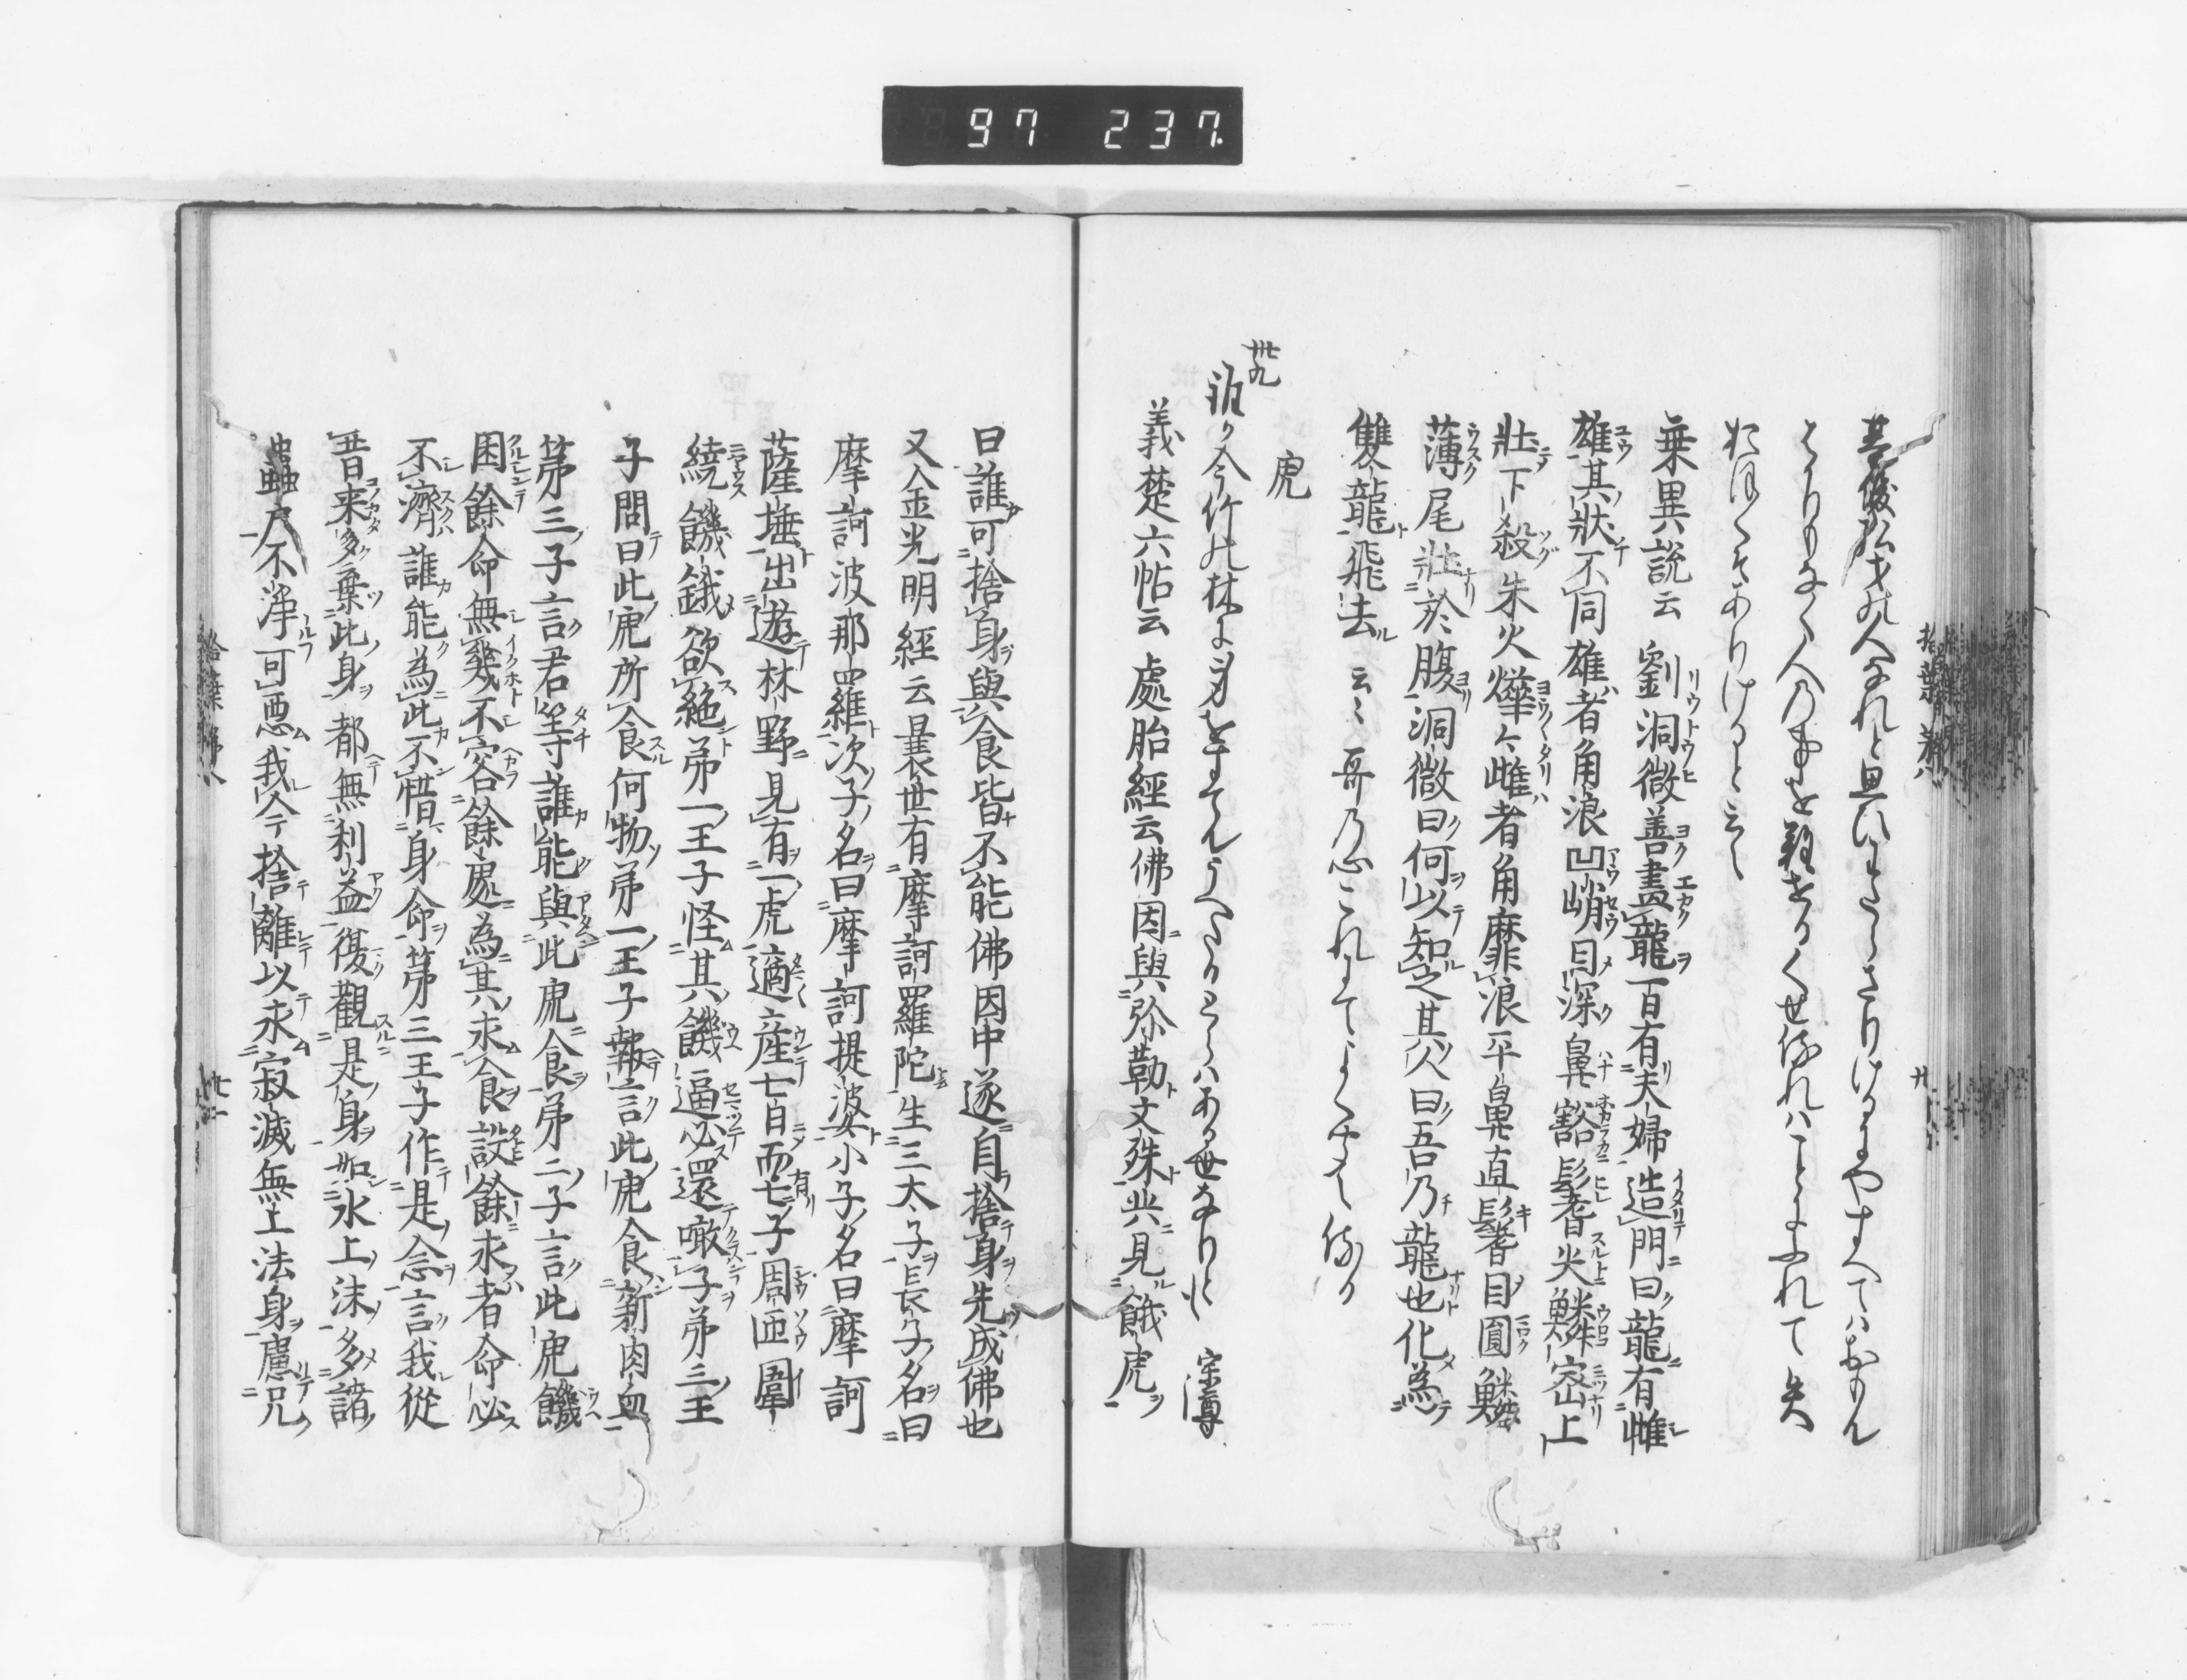 97 237
其俊弘才の人なれと思ひまたらさりけるにやすへてハおもん
はかりもなく人の事を難せるくせ侍れハことにふれて失
おほくそありけると云々
乗異説云 劉洞微善畫龍一日有夫婦造門曰龍有雌
雄其狀不同雄者角浪凹峭目深鼻豁髻尖鱗密上
壯下殺朱火燁々雌者角靡浪平鼻直鬐目圓鱗
薄尾壯於腹洞微曰何以知之其人曰吾乃龍也化為
雙龍飛去 云々 哥乃心これにてよく叶へ侍る
虎
卅九
義楚六帖云 處胎經云佛因與弥勒文殊共見餓虎
曰誰可捨身與食皆不能佛因中遂自捨身先成佛也
又金光明經云曩世有摩訶羅陀生三太子長子名曰
摩訶波那羅次子名曰摩訶提婆小子名曰摩訶
薩埵出遊林野見有一虎適産七日而有七子周迊圍
繞饑餓欲絶弟一王子怪其饑逼必還噉子弟三王
子問曰此虎所食何物弟一王子報言此虎食新肉血
第三子言君等誰能與此虎食弟二子言此虎饑
困餘命無幾不容餘處為其求食設餘求者命必
不濟誰能為此不惜身命第三王子作是念言我從
昔来多棄此身都無利益復觀是身如水上沫多諸
蟲戸不淨可悪我今捨離以求寂滅無上法身慮兄